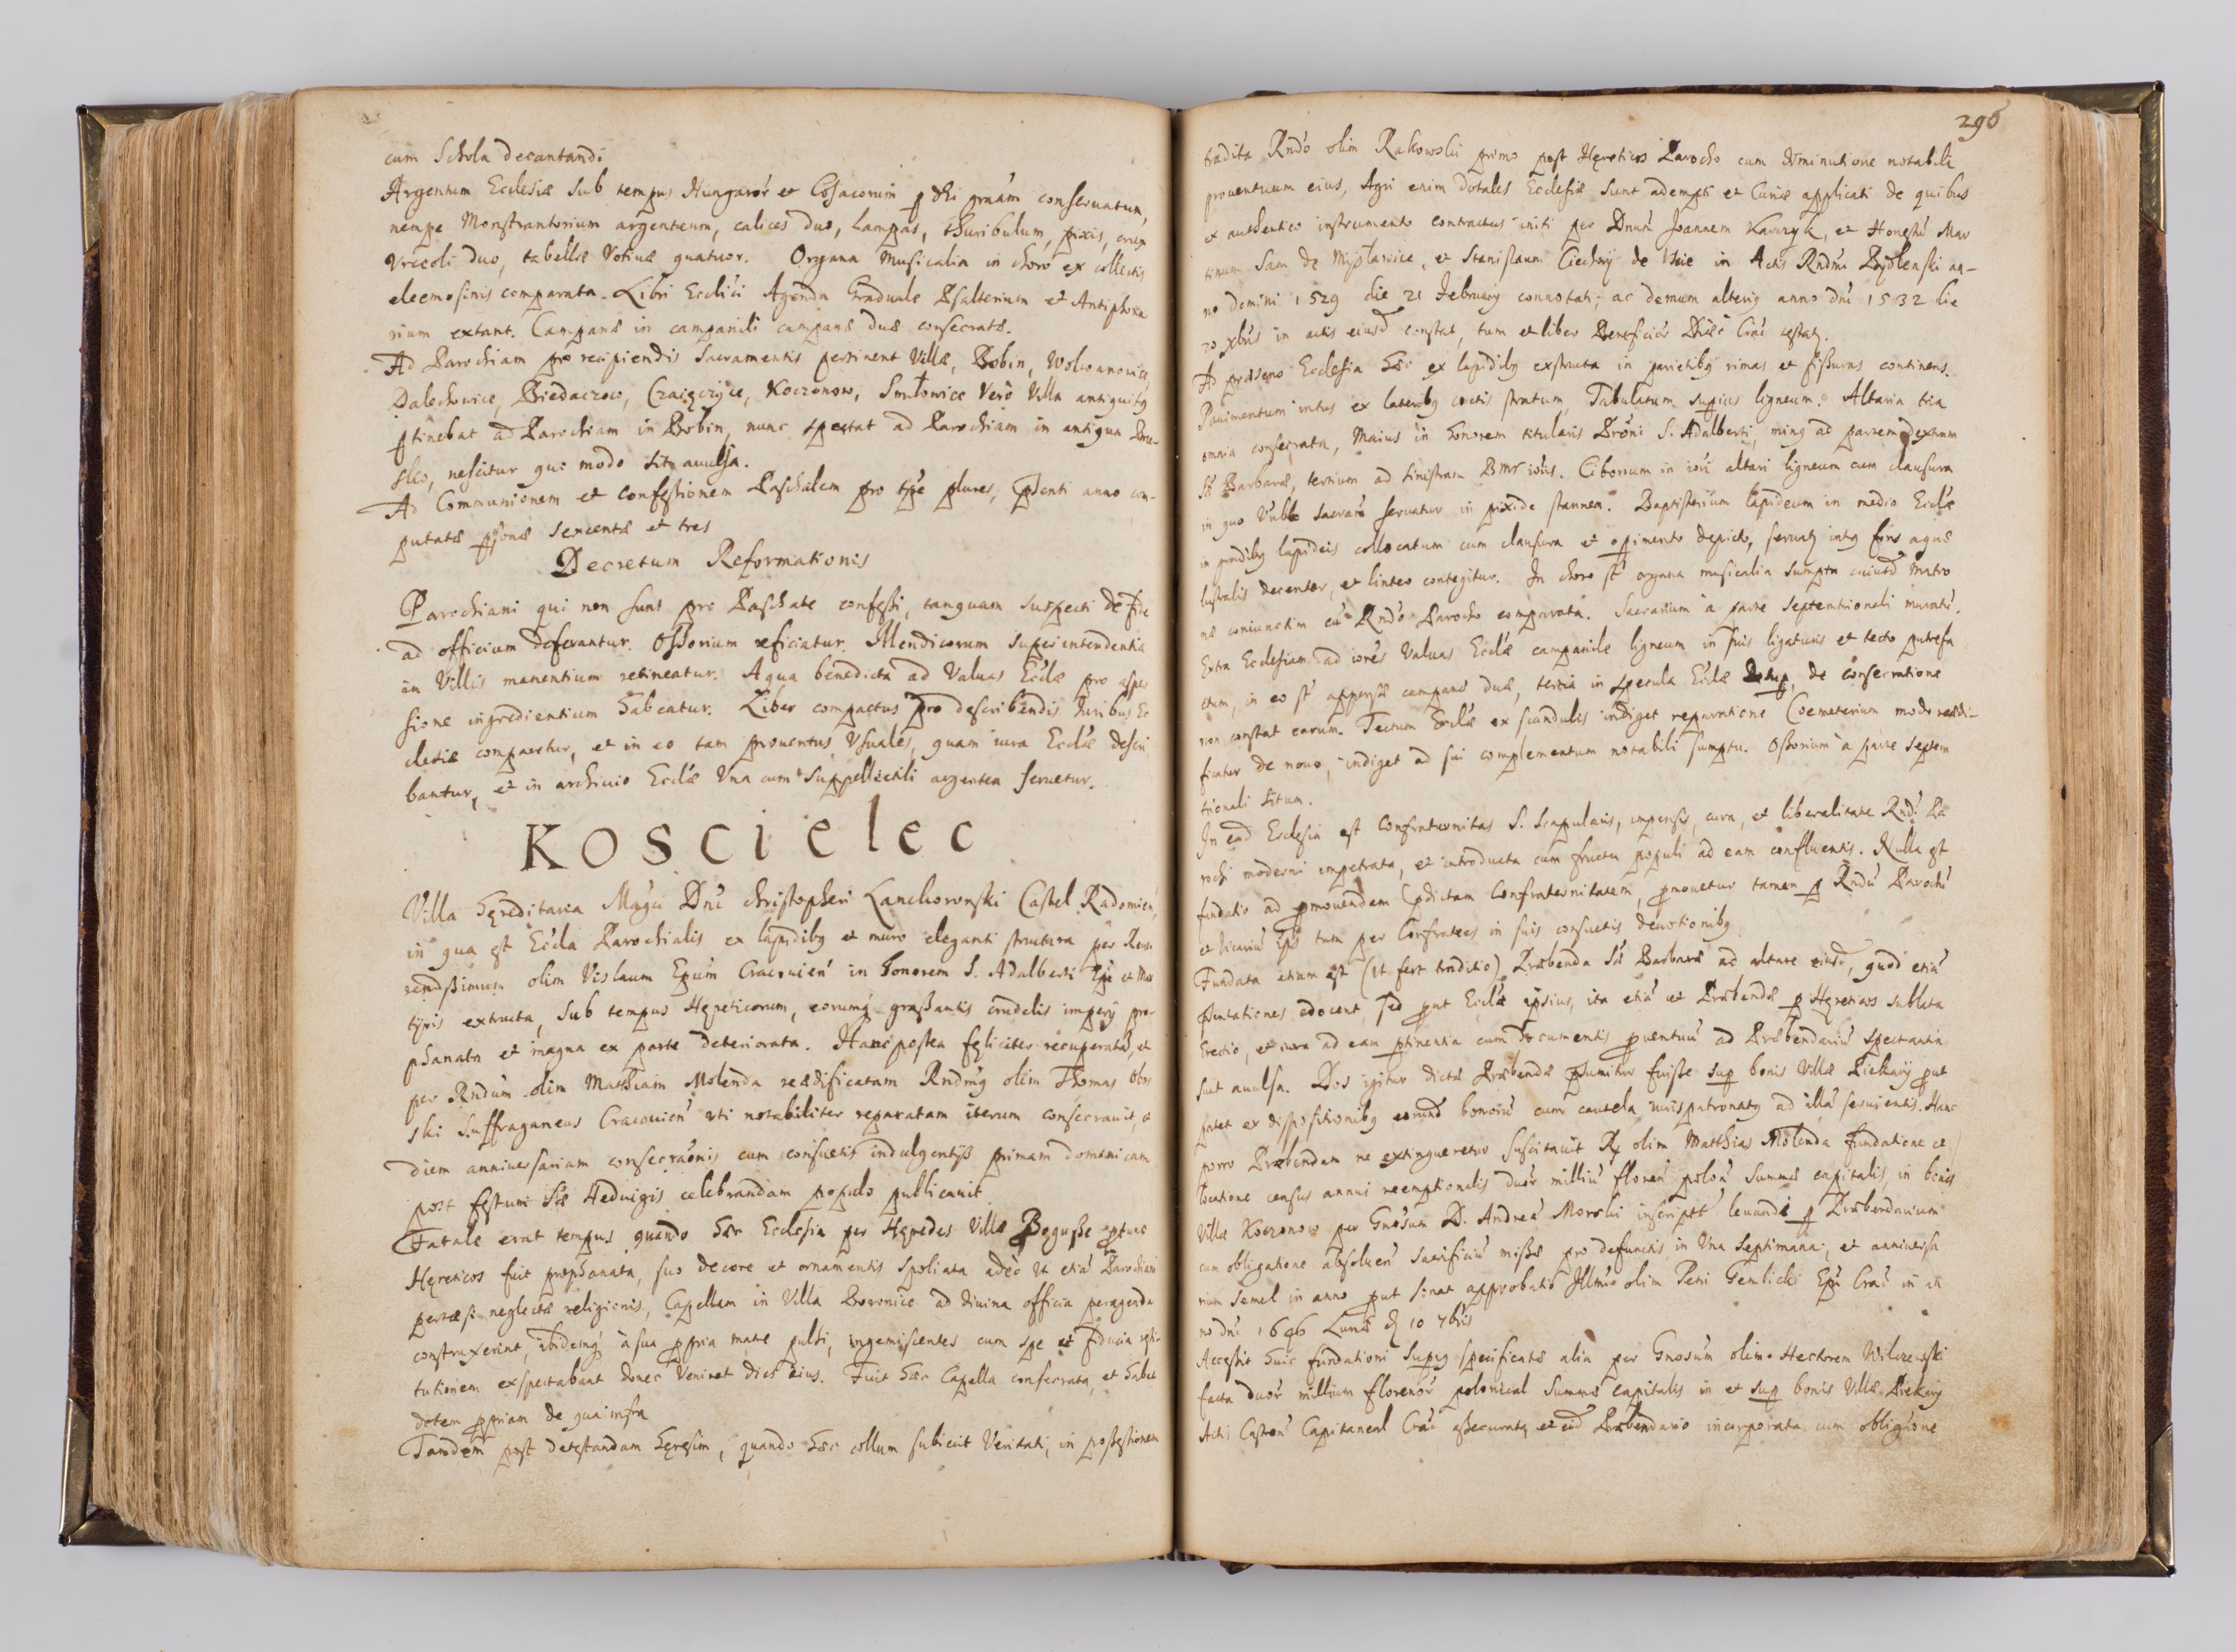 cum Schola decantandi
Argentum Ecclesiæ sub tempus Hungaror et Cosacorum p Dei gratiam conseruatum,
nempe Monstrantorium argenteum, calices duo, Lampas, thuribulum, pixis, crux
Vrceoli duo, tabellæ Votiuæ quatuor. Organa Musicalia in choro ex collectis
eleemosinis comparata. Libri Ecclici Agenda Graduale Psalterium et Antiphona
rium extant. Campanæ in campanili campanæ duæ consecratæ.
Ad Parochiam pro recipiendis Sacramentis pertinent Villæ, Bobin, Wolwanowice,
Dalechowice, Biedaczow, Czaięczyce, Koczonow, Smiłowice Vero Villa antiquitq
ptinebat ad Parochiam in Bobin, nunc spectat ad Parochiam in antiqua Bre-
sko, nescitur quo modo sit auulsa.
Ad Communionem et confessionem Paschalem pro tpe plures, pſenti anno com-
putatæ psonæ sexcentæ et tres
Decretum Reformationis
Parochiani qui non sunt pro Paschate confessi, tanquam suspecti de fide
ad officium deferantur. Ossorium reficiatur. Mendicorum superintendentia
in Villis manentium retineatur. Aqua benedicta ad Valuas Eclæ pro asper
sione ingredientium habeatur. Liber compactus pro describendis Iuribus Ec
clesiæ comparetur, et in eo tam prouentus Vsuales, quam iura Ecclæ descri
bantur, et in archiuio Ecclæ Vna cum Suppellectili argentea seruetur.
KOSCielec
Villa hæreditaria Mngci Dni Christopheri Lanckoronski Castel. Radomien,
in qua est Eccla Parochialis ex lapidibq et muro eleganti structura per Reue
rendissimum olim Vislaum Epum Cracouien in honorem S. Adalberti Epi et Mar
tyris extructa, sub tempus Hæreticorum, eorumq grassantis crudelis imperij pro-
phanata et magna ex parte deteriorata. Hanc postea feliciter recuperatā, et
per Rndum olim Matthiam Molenda reædificatam Rndmq olim Thomas Obor
ski Suffraganeus Cracouien uti notabiliter reparatam iterum consecrauit, et
diem anniuersariam consecraonis cum consuetis indulgentijs primam dominicam
post festum Stæ Heduigis celebrandam populo publicauit
Fatale erat tempus quando hæc Ecclesia per Hæredes Villæ Bogusse ptunc
Hæreticos fuit prophanata, suo decore et ornamentis spoliata adeo ut etiā Parochiani
pertæsi neglectæ religionis, Capellam in Villa Boronice ad diuina officia peragenda
construxerint, ibidemq à sua ppria matre pulsi, ingemiscentes cum spe et fiducia resti-
tutionem exspectabant donec Veniret dies eius. Fuit hæc Capella consecrata, et habet
dotem ppriam de qua infra
Tandem post detestandam hæresim, quando hæc collum subiecit Veritati, in possessionem
296
tradita Rndo olim Rakowski primo post Hæreticos Parocho cum diminutione notabili
prouentuum eius, Agri enim dotales Ecclesiæ sunt adempti et Curiæ applicati de quibus
ex authentico instrumento contractus initi per Dnum Joannem Karczyk, et Honestū Mar
tinum Sam de Mysławice, et Stanislaum Ciechny de Vscie in Actis Rndmi Bydlenski an-
no domini 1529 die 21 February connotati; ac demum alterig anno dni 1532 die
20 xbris in actis eiusd constat, tum et liber Beneficior Diæc Crac testatr.
Ad præsens Ecclesia hæc ex lapidibq exstructa in parietibq rimas et fissuras continens.
Pauimentum intus ex lateribq coctis stratum, Tabulatum supius ligneum. Altaria tria
omnia consecrata, Maius in honorem titularis Proni S. Adalberti, minq ad partem dextram
Stæ Barbaræ, tertium ad sinistram Bmr iouis. Ciborium in iori altari ligneum cum clausura
in quo Vnble Sacram seruatur in pixide stannea. Baptisterium lapideum in medio Ecclæ
in gradibq lapideis collocatum cum clausura et opimento depicto, seruatr intq fons aquæ
lustralis decenter, et linteo contegitur. In choro st organa musicalia sumptu cuiusd Matro
næ coniunctim cū Rndo Parocho comparata. Sacrarium à parte septemtrionali muratū.
Extra Ecclesiam ad iores Valuas Ecclæ campanile ligneum in suis ligaturis et tecto putrefa
ctum, in eo st appensæ campanæ duæ, tertia in specula Eclæ, de consecratione
non constat earum. Tectum Ecclæ ex scandulis indiget reparatione Coemeterium modo reædi-
ficatur de nouo, indiget ad sui complementum notabili sumptu. Ossorium à parte septem
trionali situm.
In ead Ecclesia est Confraternitas S. Scapularis, impensis, cura, et liberalitate Rndi Pa
rochi moderni impetrata, et introducta cum fructu populi ad eam confluentis. Nulla est
fundatio ad pmouendam pdictam Confraternitatem, pmouetur tamen p Rndū Parochū
et Vicariū Eps tum per Confratres in suis consuetis deuotionibq
Fundata etiam est (ut fert traditio) Præbenda Stæ Barbaræ ad altare eiusd, quod etiā
pſentationes edocent, sed put Ecclæ ipsius, ita etiā et Præbendæ p Hæreticos sublata
Erectio, et iura ad eam ptinentia cum documentis puentuū ad Præbendariū spectantia
sunt auulsa. Dos igitur dictæ Præbendæ psumitur fuisse sup bonis Villæ Piekary put
patet ex dispositionibq eorund bonorū cum cautela iurispatronatq ad illā seruientis. Hanc
porro Præbendam ne extingueretur suscitauit Rx olim Matthias Molenda fundatione et
locatione census annui reemptionalis duor milliū floren polon summæ capitalis, in bonis
Villæ Koczonow per Gnosum D. Andreā Morski inscript leuandi p Præbendarium
cum obligatione absoluen sacrificiū missæ pro defunctis in Vna Septimana, et anniuersa
rium semel in anno put sonat approbatio Illmi olim Petri Gembicki Epi Crac in an
no dni 1646 Lunæ d 10 7bris
Accessit huic fundationi suprq specificatæ alia per Gnosum olim Hectorem Wilczewski
facta duor millium florenor polonical summæ capitalis in et sup bonis Villæ Piekary
Actis Castren Capitaneal Crac assecurata et eid Præbendario incorporata cum obligaone